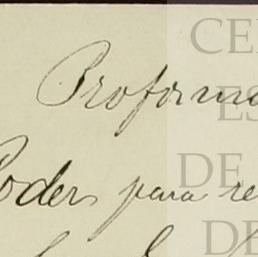 Proforma
Poder para re
CE
ES
DE
DE